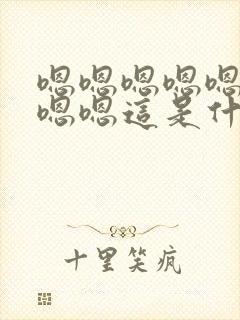 嗯嗯嗯嗯嗯
嗯嗯這是什
十里笑疯